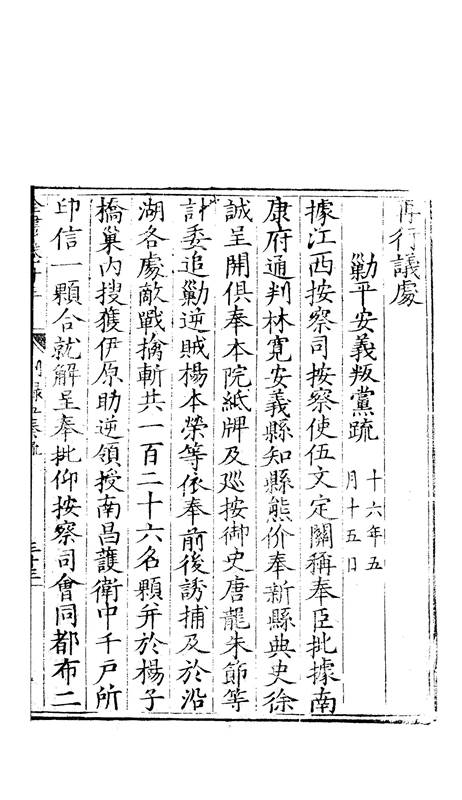 再行議處
勦平安義叛黨疏
十六年五
月十五日
據江西按察司按察使伍文定關稱奉臣批據南
康府通判林寬安義縣知縣熊价奉新縣典史徐
誠呈開俱奉本院紙牌及廵按御史唐龍朱節等
計委追勦逆賊楊本榮等依奉前後誘捕及於沿
湖各處敵戰擒斬共一百二十六名顆并於楊子
橋巢內搜獲伊原助逆領授南昌護衛中千戶所
印信一顆合就解呈奉批仰按察司會同都布二